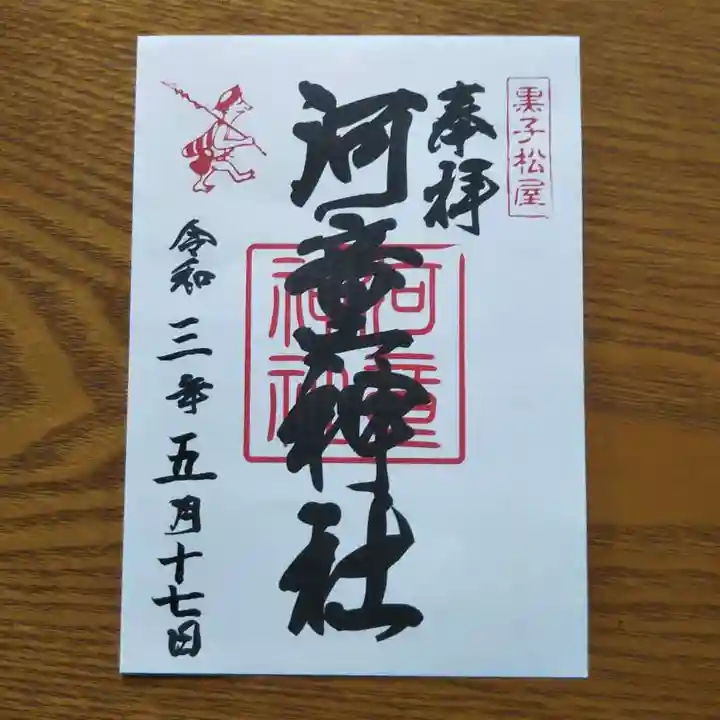 黒子松屋
奉拝
河童神社
河童
神社
令和三年五月十七日